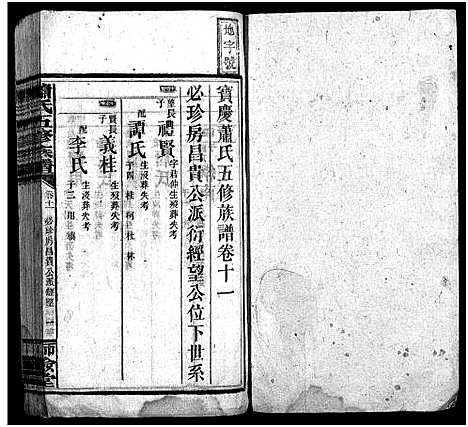 地字號
寶慶蕭氏五修族譜卷十一
必珍房昌貴公派衍經望公位下世系
長
子
禮賢
字君仲生歿葬失考
配
譚氏
生歿葬失考
子四 桂 柯 杜 林
賢長
子
義桂
生歿葬失考
配
李氏
生歿葬失考
子三
蕭氏五修族譜
卷十一
必珍房昌貴公派